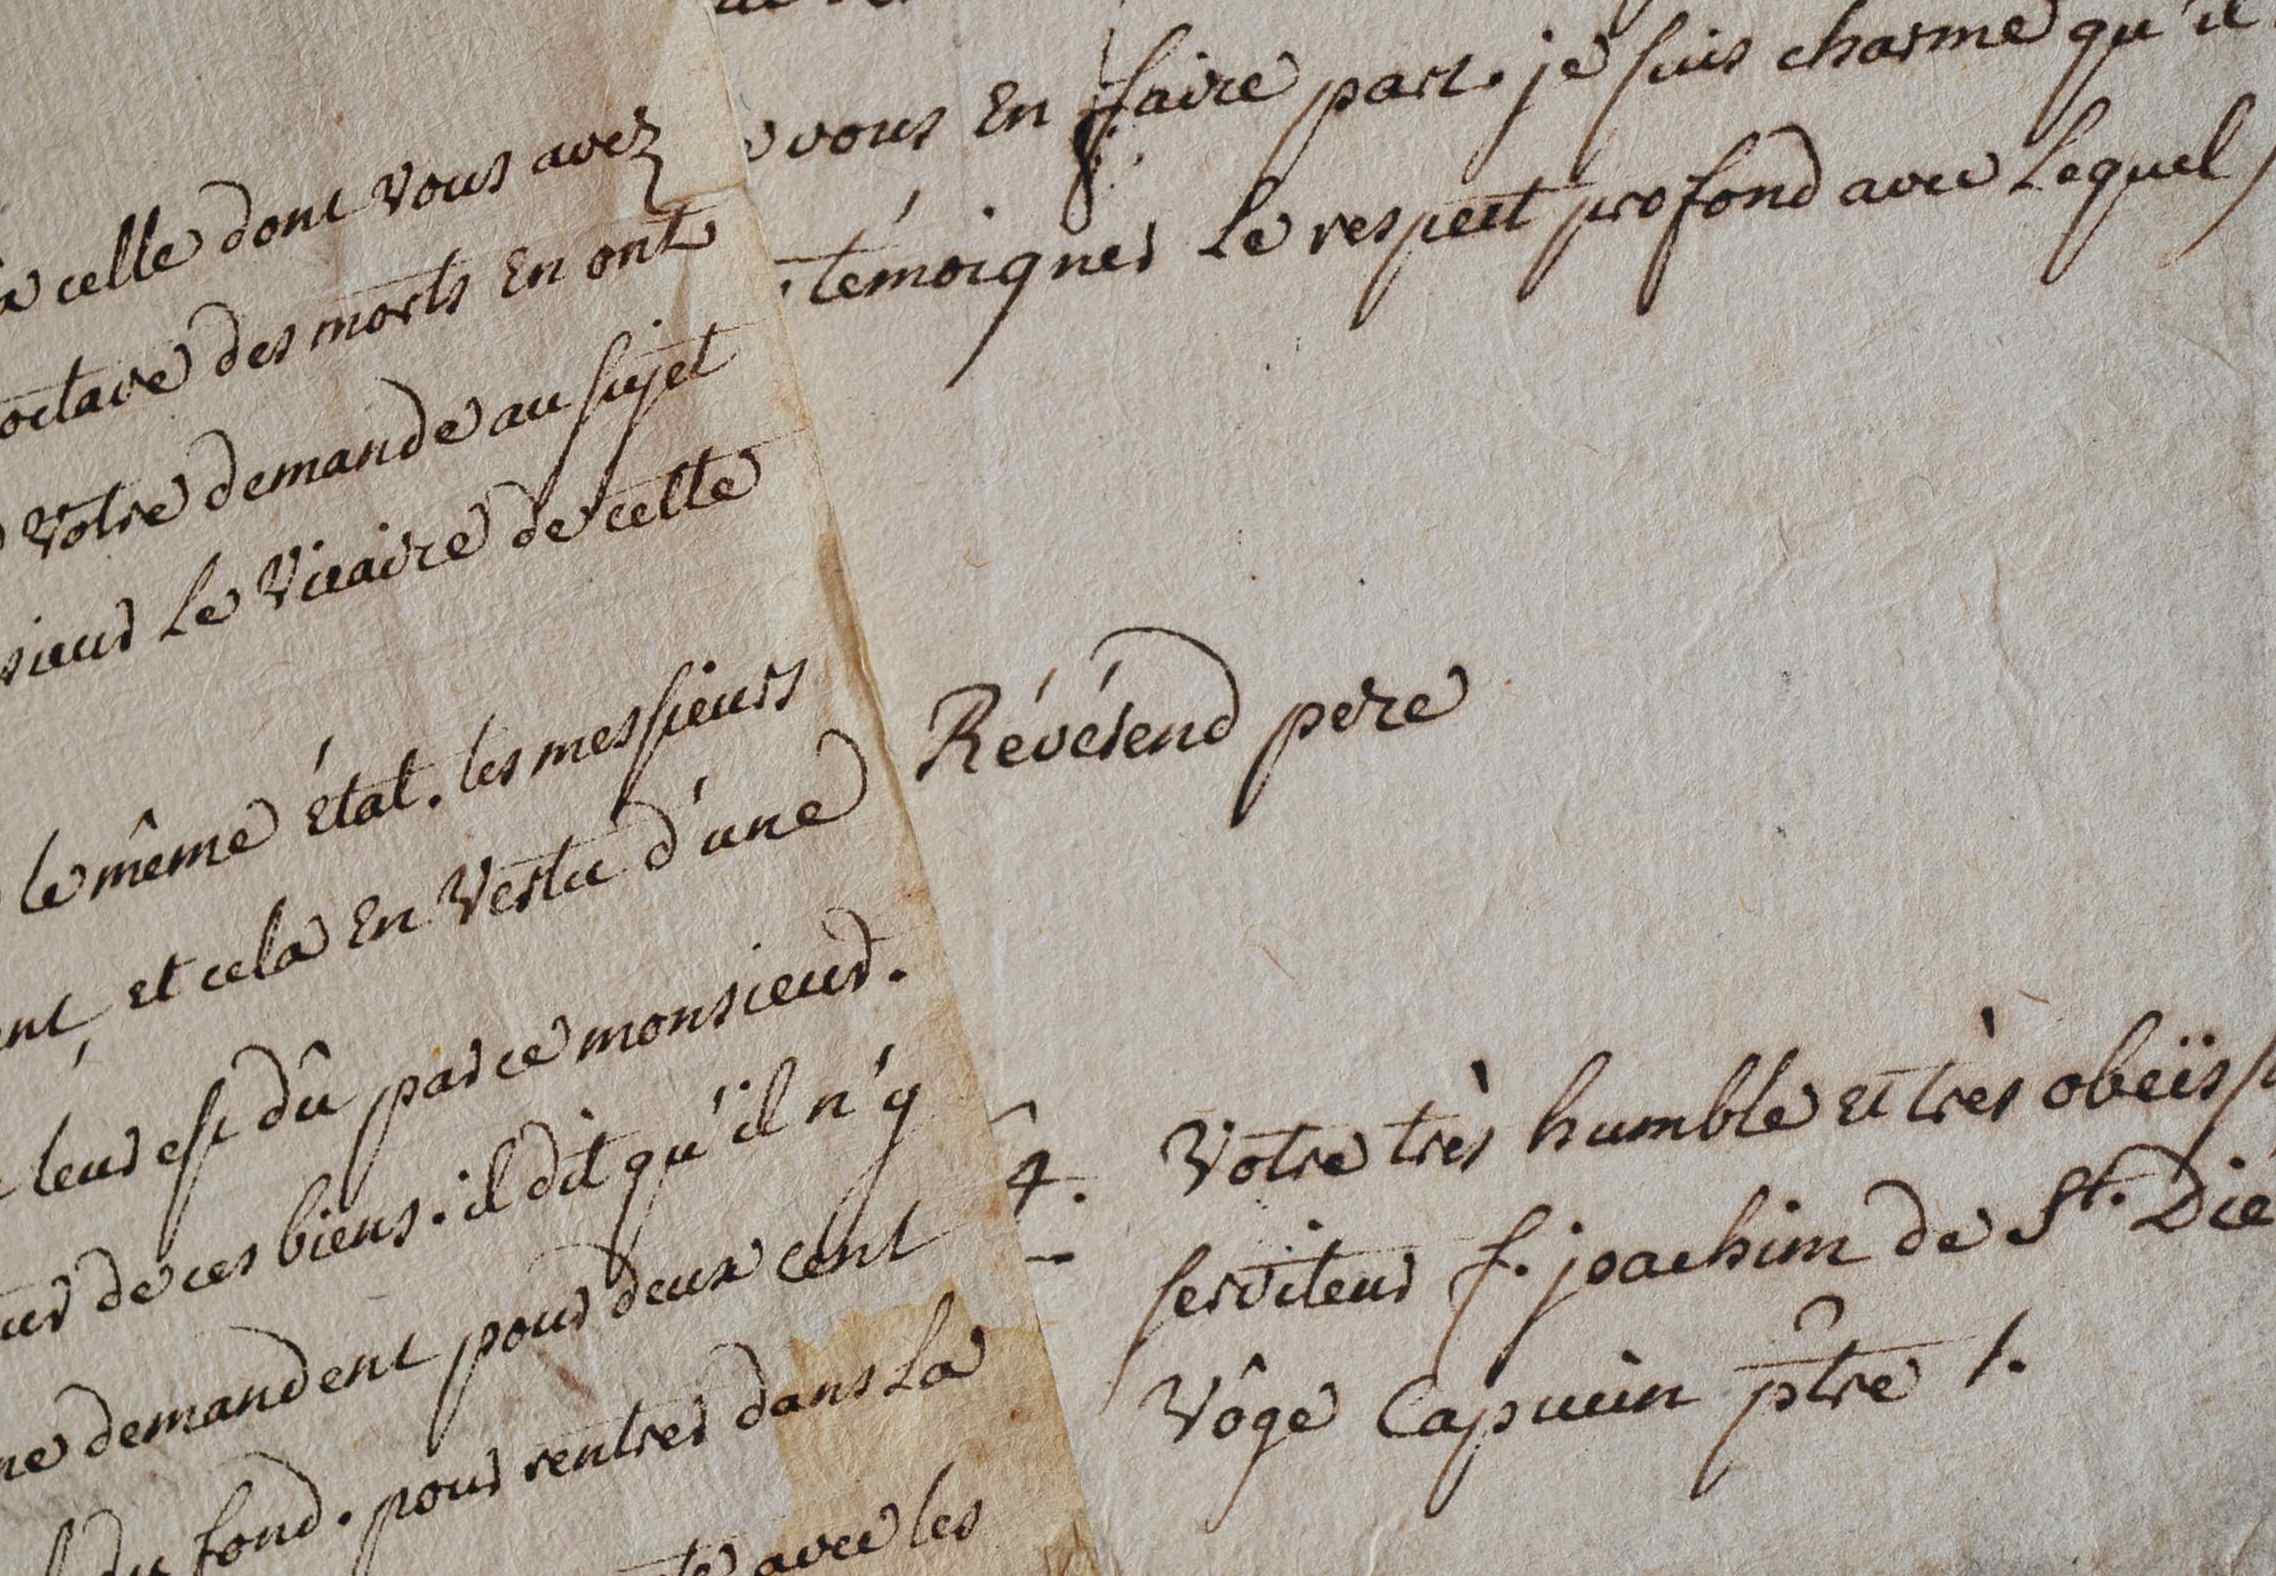 à celle dont Vous avez
octave des morts En ont
Votre demande au sujet
sieur Le Vicaire de cette
le même état. les messieurs
et cela En Vertu d'une
leur est dû par ce monsieur.
de ces biens. il dit qu'il n'y
demandent pour deux cent
du fond. pour rentrer dans La
avec les
vous En faire part. je suis charmé qu'il
témoigner Le respect profond avec Lequel
Révérend pere
4. Votre très humble et très obeïss
serviteur f. joachim de St. Dié
Vôge Capucin ptre